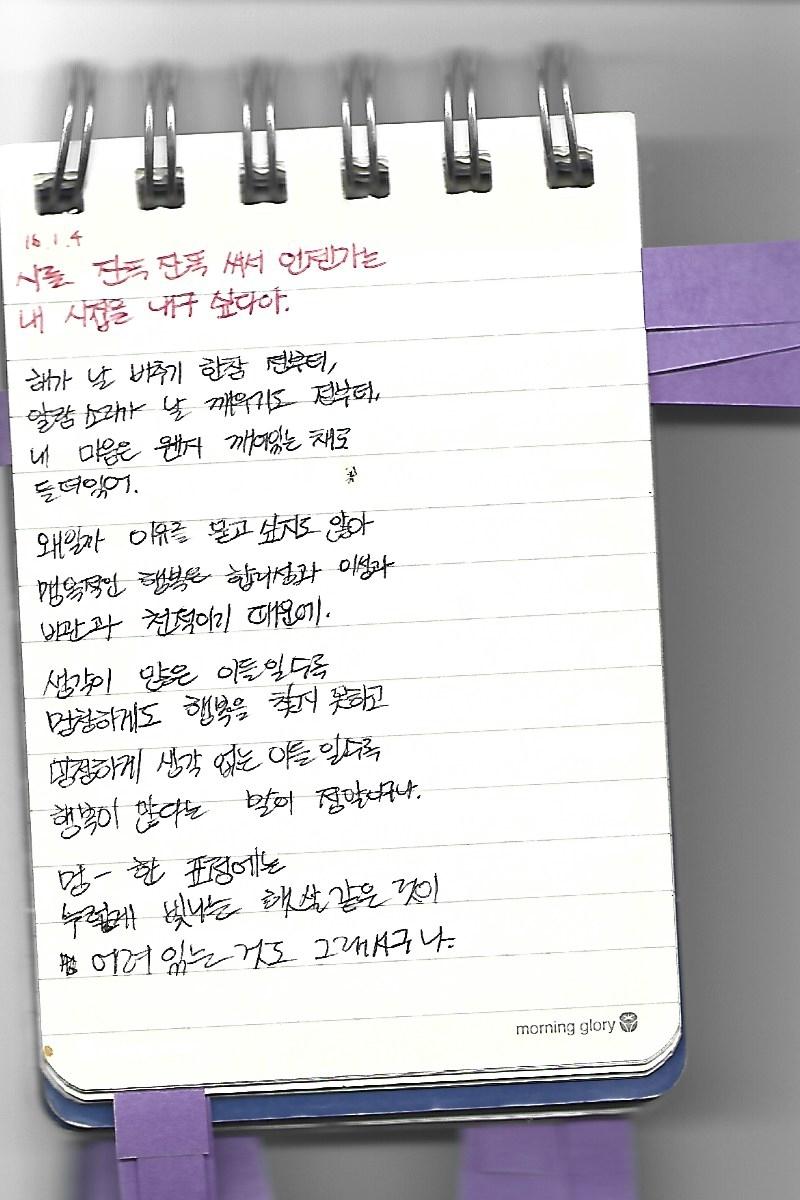 16.1.4
시를 잔뜩 잔뜩 써서 언젠가는
내 시집을 내구 싶다아.
해가 날 비추기 한참 전부터,
알람 소리가 날 깨우기도 전부터,
내 마음은 웬지 깨어있는 채로
들떠있어.
왜일까 이유를 묻고 싶지도 않아
맹목적인 행복은 합리성과 이성과
비관과 천적이기 때문에.
생각이 많은 이들일수록
멍청하게도 행복을 찾지 못하고
멍청하게 생각 없는 이들일수록
행복이 많다는 말이 정말이구나.
멍- 한 표정에는
누렇게 빛나는 햇살 같은 것이
어려 있는 것도 그래서구나.
morning glory